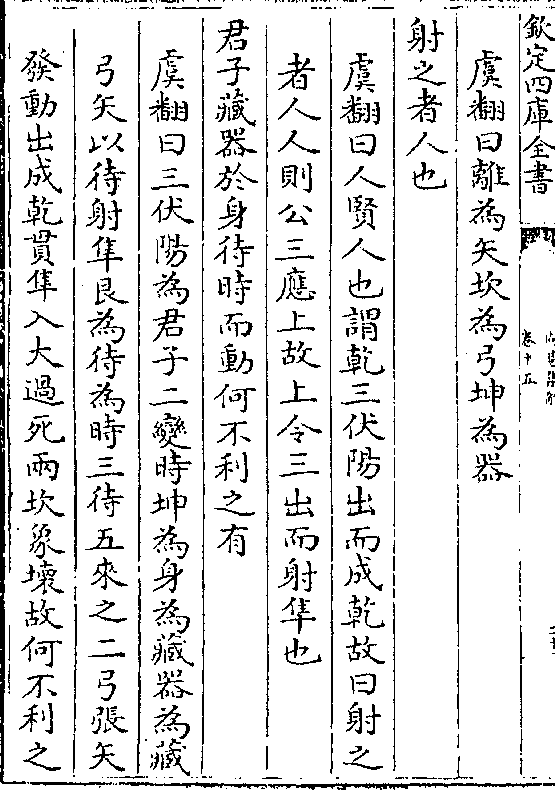 欽定四庫全書
卷十五
虞翻曰離為矢坎為弓坤為器
射之者人也
虞翻曰人賢人也謂乾三伏陽出而成乾故曰射之
者人人則公三應上故上令三出而射隼也
君子藏器於身待時而動何不利之有
虞翻曰三伏陽為君子二變時坤為身為藏器為藏
弓矢以待射隼艮為待為時三待五來之二弓張矢
發動出成乾貫隼入大過死兩坎象壞故何不利之